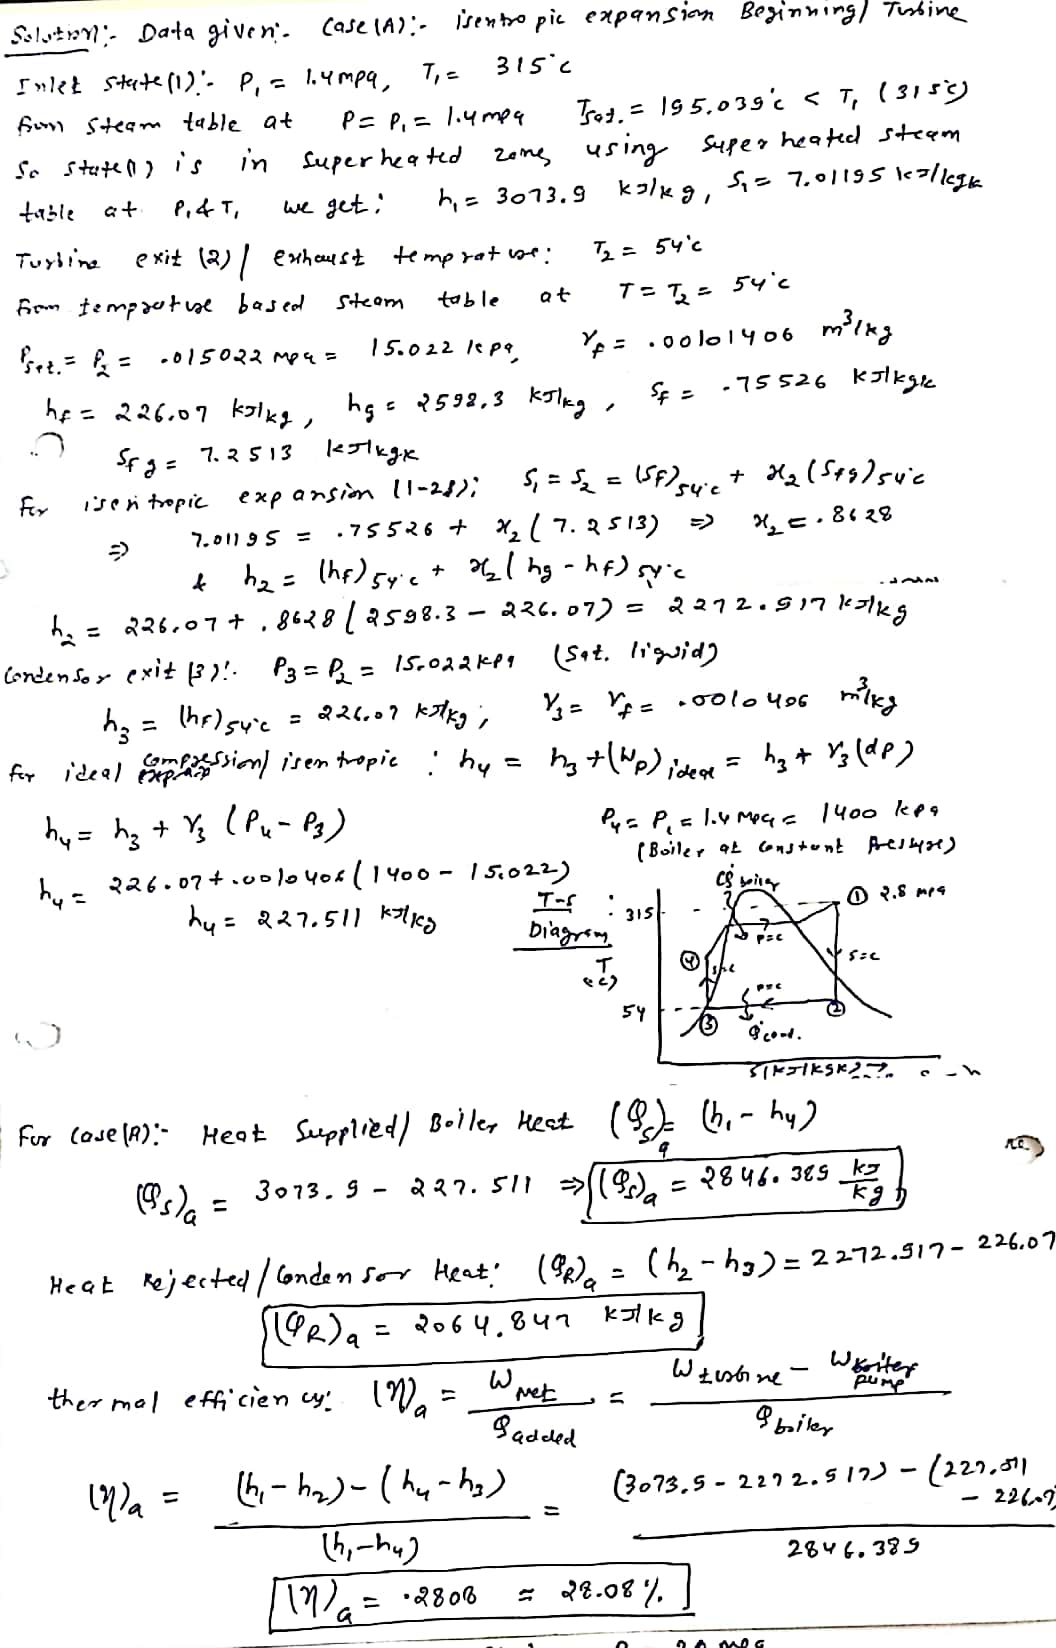 Solution:- Data given:- Case (A):- isentropic expansion Beginning/ Turbine
Inlet State(1):- P₁ = 1.4mpa, T₁ = 315°c
from steam table at P = P₁ = 1.4mpa Tsat. = 195.039°c < T₁ (315°c)
So state(1) is in Superheated zone, using Super heated steam
table at P₁ & T₁ we get: h₁ = 3073.9 kJ/kg, S₁ = 7.01195 kJ/kgk
Turbine exit (2) / exhaust temprature: T₂ = 54°c
from temprature based steam table at T = T₂ = 54°c
Psat. = P₂ = .015022 mpa = 15.022 kpa, Vf = .00101406 m³/kg
hf = 226.07 kJ/kg, hg = 2598.3 kJ/kg, Sf = .75526 kJ/kgk
Sfg = 7.2513 kJ/kgk
for isentropic expansion (1-2s): S₁ = S₂ = (Sf)54°c + x₂ (Sfg)54°c
⇒ 7.01195 = .75526 + x₂ (7.2513) ⇒ x₂ = .8628
& h₂ = (hf)54°c + x₂ (hg - hf) 54°c
h₂ = 226.07 + .8628 (2598.3 - 226.07) = 2272.917 kJ/kg
Condensor exit (3):- P₃ = P₂ = 15.022kpa (Sat. liquid)
h₃ = (hf)54°c = 226.07 kJ/kg, V₃ = Vf = .0010406 m³/kg
for ideal compression/ isentropic : h₄ = h₃ + (Wp)ideal = h₃ + V₃ (dp)
h₄ = h₃ + V₃ (P₄ - P₃) P₄ = P₁ = 1.4 Mpa = 1400 kpa
(Boiler at Constant Pressure)
h₄ = 226.07 + .0010406 (1400 - 15.022)
h₄ = 227.511 kJ/kg
T-s : Diagram
T (°c)
315
54
boiler
① 2.8 mpa
p=c
s=c
④
s=c
p=c
③
②
q cond.
S(kJ/kgk)
For Case (A):- Heat Supplied/ Boiler Heat (Qs)a = (h₁ - h₄)
(Qs)a = 3073.9 - 227.511 ⇒ (Qs)a = 2846.389 kJ/kg
Heat Rejected/Condensor Heat: (QR)a = (h₂ - h₃) = 2272.917 - 226.07
(QR)a = 2064.847 kJ/kg
thermal efficiency: (η)a = W net / Q added = W turbine - W pump / Q boiler
(η)a = (h₁ - h₂) - (h₄ - h₃) / (h₁ - h₄) = (3073.9 - 2272.917) - (227.511 - 226.07) / 2846.389
(η)a = .2808 ≈ 28.08%